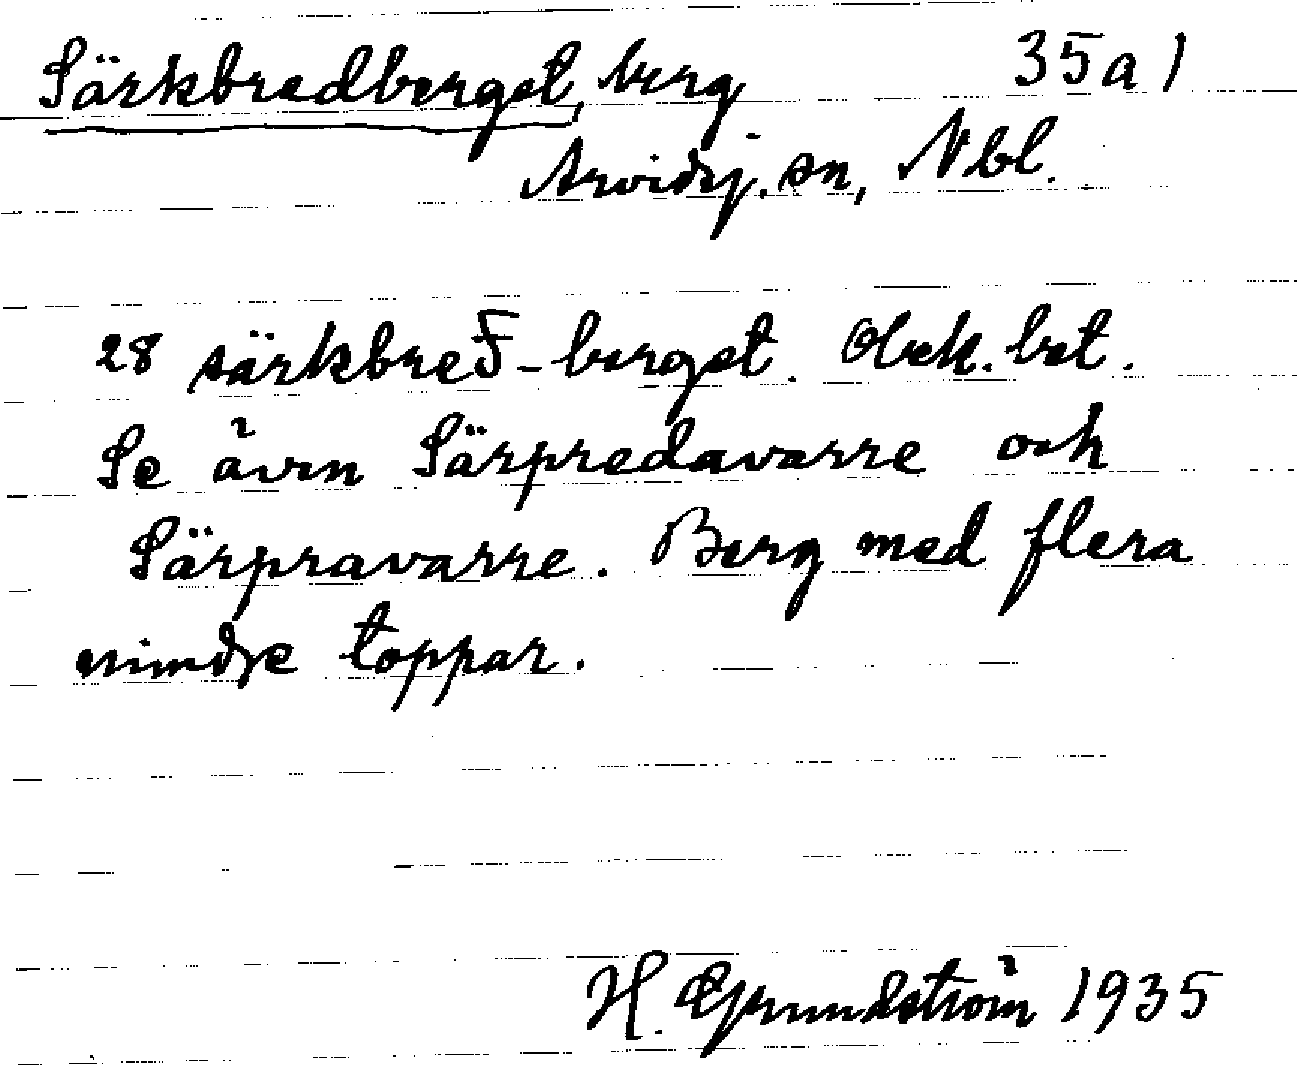 Särkbredberget, berg 35a1
Arvidsj. sn, Nbl.
28 särkbređ-berget. Obek. bet.
Se även Särpredavarre och
Särpravarre. Berg med flera
mindre toppar.
H. Grundström 1935